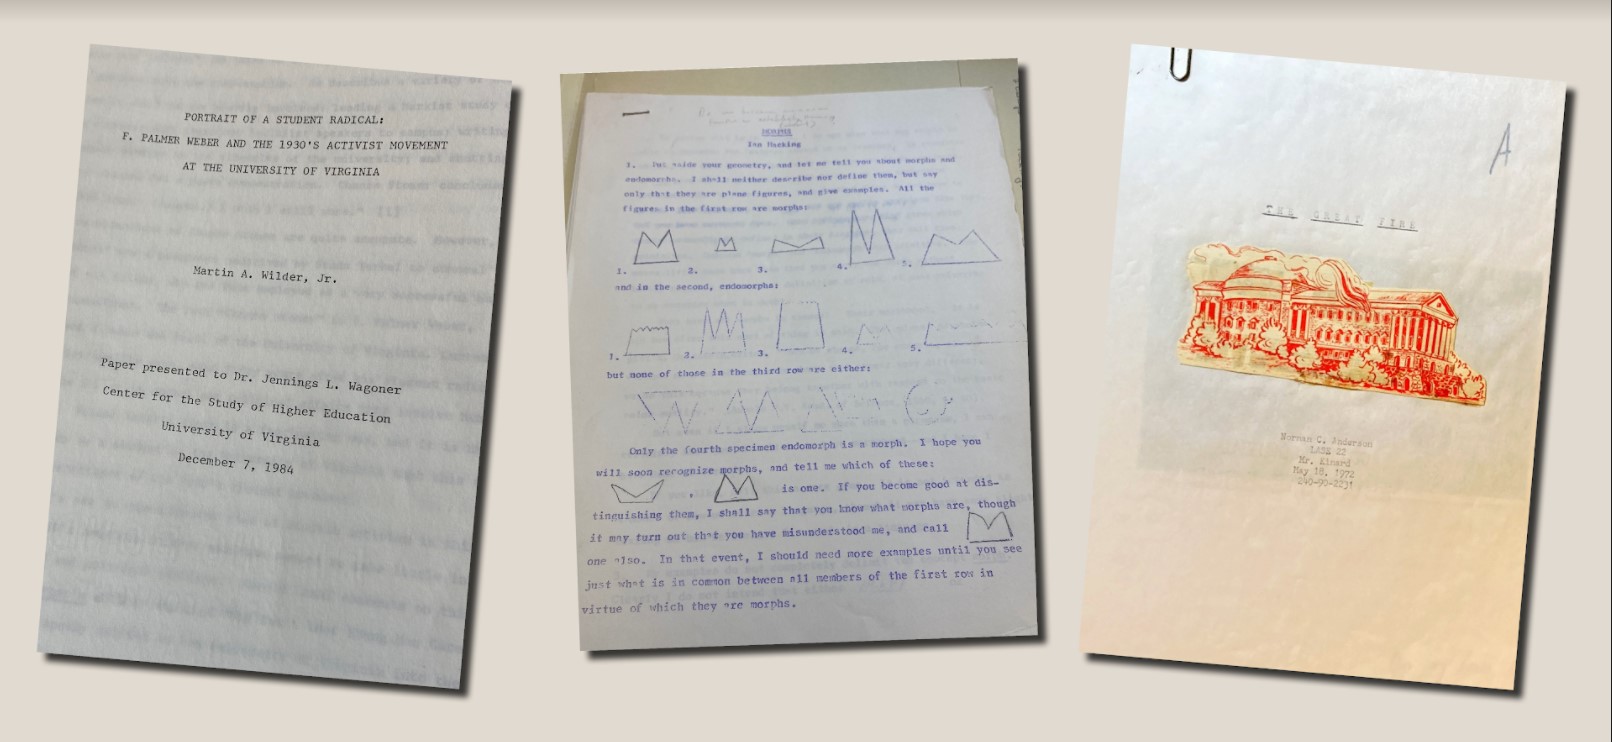 PORTRAIT OF A STUDENT RADICAL:
F. PALMER WEBER AND THE 1930'S ACTIVIST MOVEMENT
AT THE UNIVERSITY OF VIRGINIA
Martin A. Wilder, Jr.
Paper presented to Dr. Jennings L. Wagoner
Center for the Study of Higher Education
University of Virginia
December 7, 1984
MORPHS
Ian Hacking
1. Put aside your geometry, and let me tell you about morphs and
endomorphs. I shall neither describe nor define them, but say
only that they are plane figures, and give examples. All the
figures in the first row are morphs:
1. 2. 3. 4. 5.
and in the second, endomorphs:
1. 2. 3. 4. 5.
but none of those in the third row are either:
Only the fourth specimen endomorph is a morph. I hope you
will soon recognize morphs, and tell me which of these:
, is one. If you become good at dis-
tinguishing them, I shall say that you know what morphs are, though
it may turn out that you have misunderstood me, and call
one also. In that event, I should need more examples until you see
just what is in common between all members of the first row in
virtue of which they are morphs.
A
THE GREAT FIRE
Norman C. Anderson
LASE 22
Mr. Kinard
May 18, 1972
249-90-2231